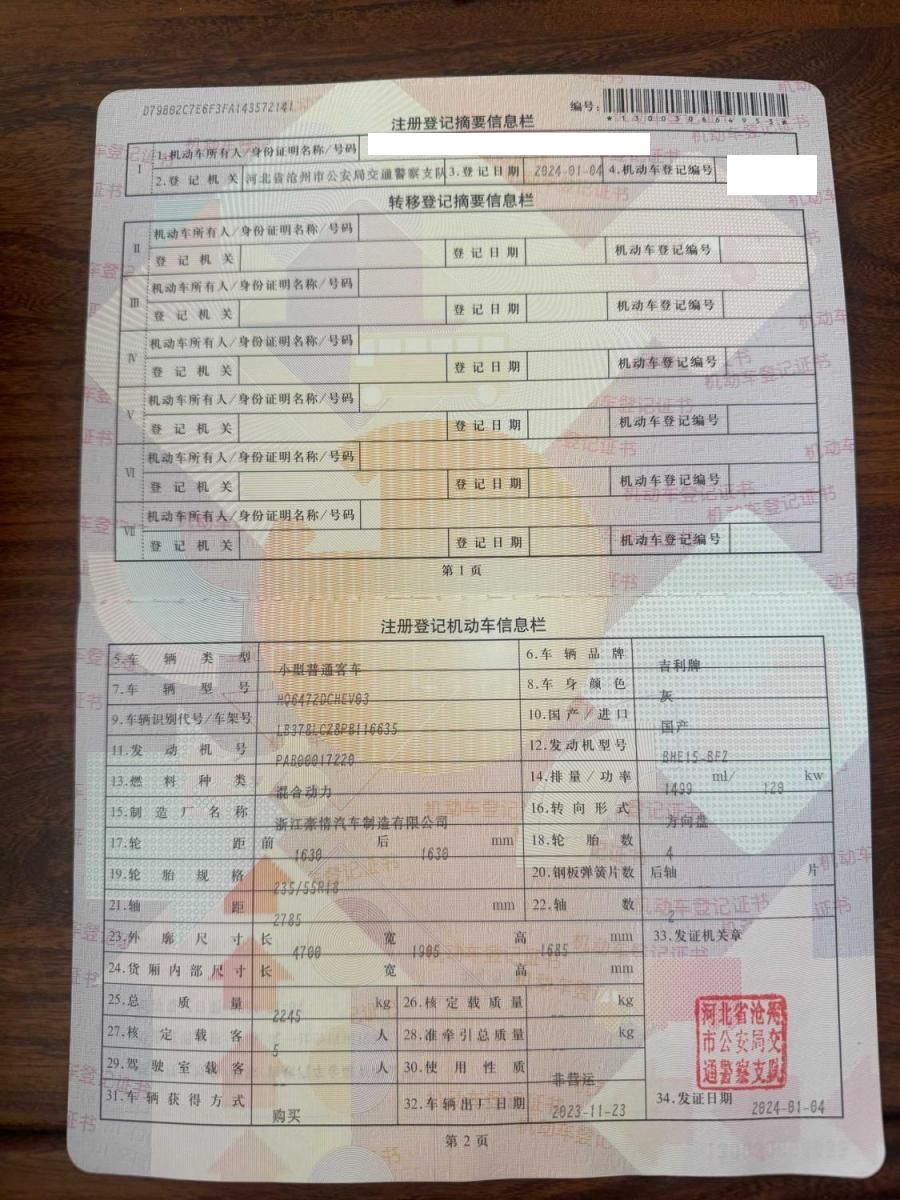 D79B02C7E6F3FA143572141
编号:
*130030664953*
注册登记摘要信息栏
I 1.机动车所有人/身份证明名称/号码
2.登记机关 河北省沧州市公安局交通警察支队 3.登记日期 2024-01-04 4.机动车登记编号
转移登记摘要信息栏
II 机动车所有人/身份证明名称/号码
登记机关 登记日期 机动车登记编号
III 机动车所有人/身份证明名称/号码
登记机关 登记日期 机动车登记编号
IV 机动车所有人/身份证明名称/号码
登记机关 登记日期 机动车登记编号
V 机动车所有人/身份证明名称/号码
登记机关 登记日期 机动车登记编号
VI 机动车所有人/身份证明名称/号码
登记机关 登记日期 机动车登记编号
VII 机动车所有人/身份证明名称/号码
登记机关 登记日期 机动车登记编号
第1页
注册登记机动车信息栏
5.车辆类型 小型普通客车 6.车辆品牌 吉利牌
7.车辆型号 HQ6472DCHEV03 8.车身颜色 灰
9.车辆识别代号/车架号 LB378LCZ8PB116635 10.国产/进口 国产
11.发动机号 PAB00017220 12.发动机型号 BHE15-BFZ
13.燃料种类 混合动力 14.排量/功率 1499 ml/ 120 kw
15.制造厂名称 浙江豪情汽车制造有限公司 16.转向形式 方向盘
17.轮距 前 1630 后 1630 mm 18.轮胎数 4
19.轮胎规格 235/55R18 20.钢板弹簧片数 后轴 -- 片
21.轴距 2785 mm 22.轴数 2
23.外廓尺寸 长 4700 宽 1905 高 1685 mm 33.发证机关章
24.货厢内部尺寸 长 宽 高 mm
25.总质量 2245 kg 26.核定载质量 -- kg
27.核定载客 5 人 28.准牵引总质量 -- kg
河北省沧州市公安局交通警察支队
29.驾驶室载客 -- 人 30.使用性质 非营运
31.车辆获得方式 购买 32.车辆出厂日期 2023-11-23 34.发证日期 2024-01-04
第2页